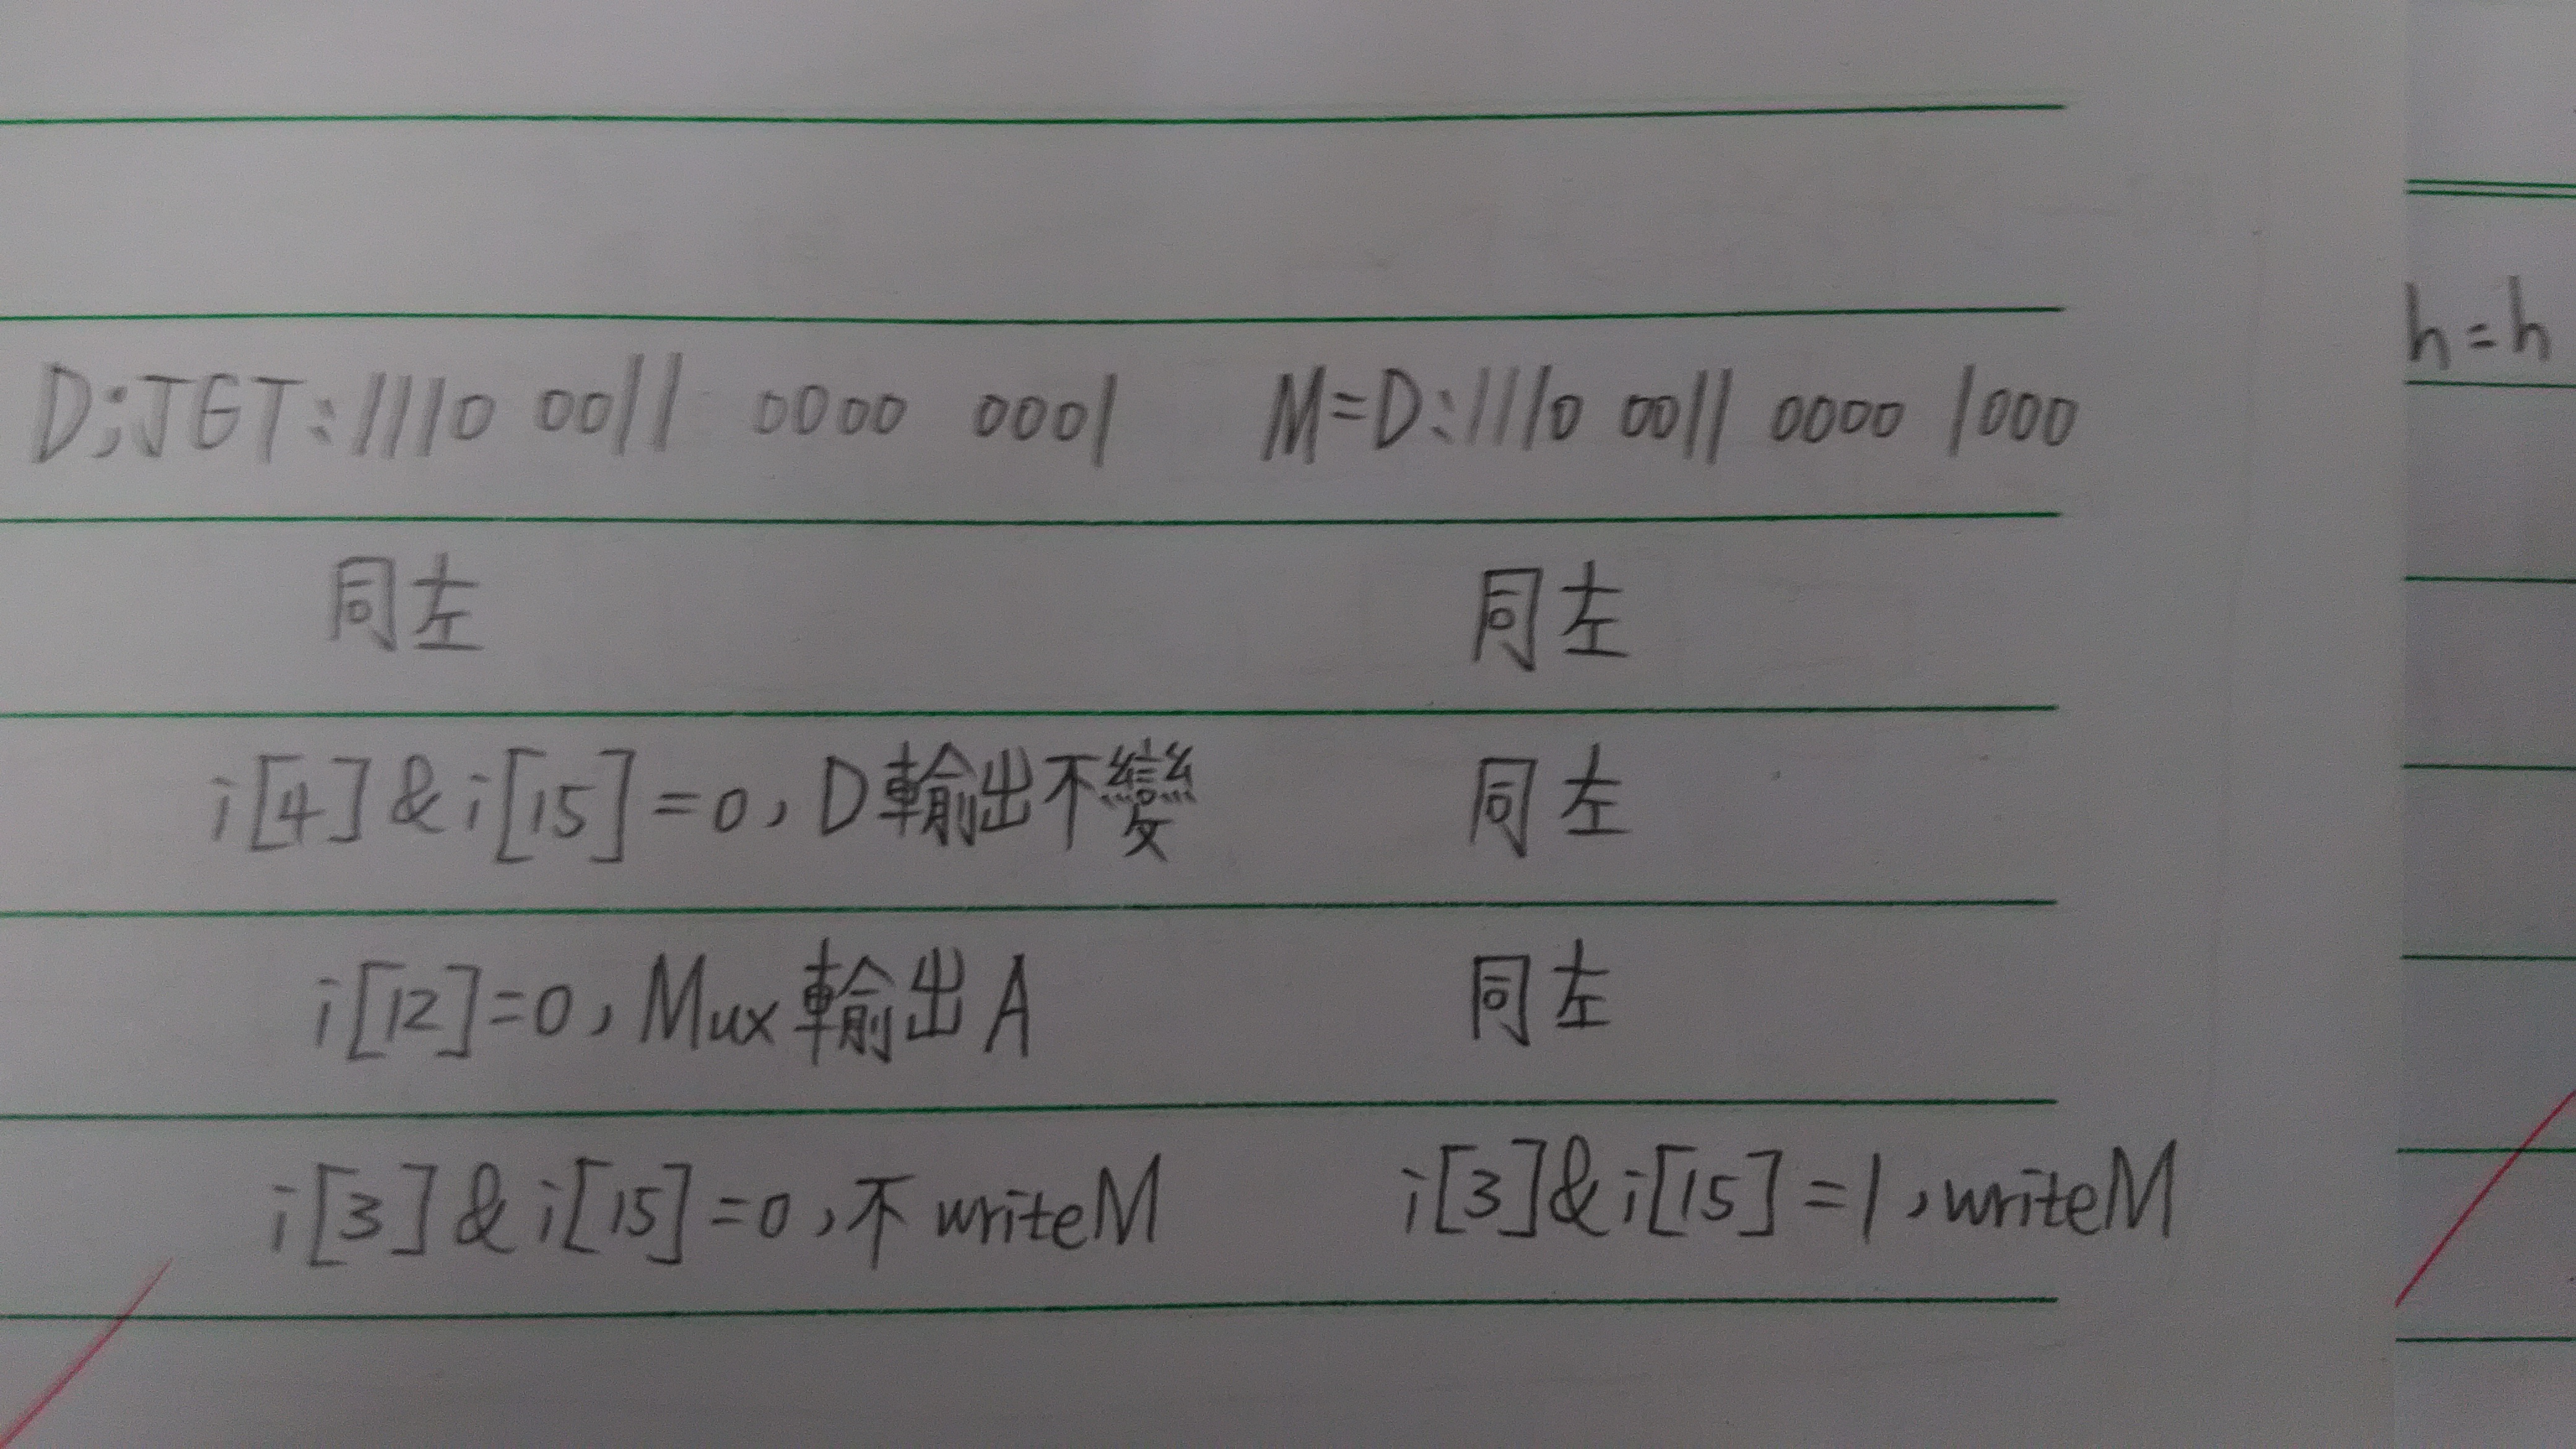 D;JGT:1110 0011 0000 0001 M=D:1110 0011 0000 1000
h=h
同左 同左
i[4]&i[15]=0,D輸出不變 同左
i[12]=0,Mux輸出A 同左
i[3]&i[15]=0,不writeM i[3]&i[15]=1,writeM